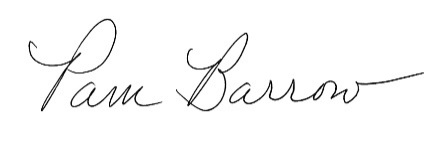 Pam Barrow